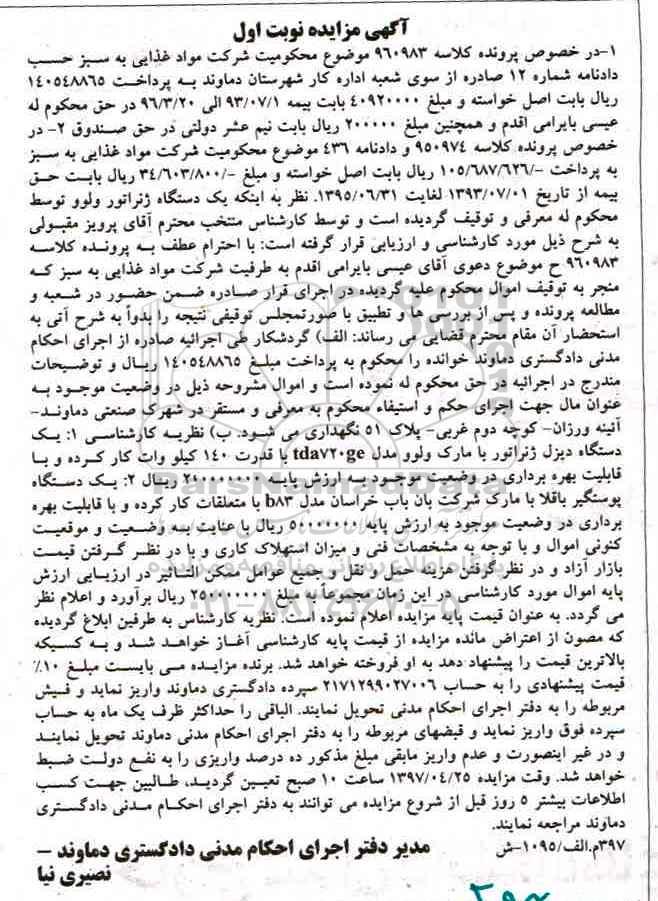 آگهی مزایده نوبت اول
۱-در خصوص پرونده کلاسه ۹۶۰۹۸۳ موضوع محکومیت شرکت مواد غذایی به سبز حسب
دادنامه شماره ۱۲ صادره از سوی شعبه اداره کار شهرستان دماوند به پرداخت ۱۴۰۵۴۸۸۶۵
ریال بابت اصل خواسته و مبلغ ۴۰۹۲۰۰۰۰ بابت بیمه ۹۳/۰۷/۱ الی ۹۶/۳/۲۰ در حق محکوم له
عیسی بایرامی اقدم و همچنین مبلغ ۲۰۰۰۰۰ ریال بابت نیم عشر دولتی در حق صندوق ۲- در
خصوص پرونده کلاسه ۹۵۰۹۷۴ و دادنامه ۴۳۶ موضوع محکومیت شرکت مواد غذایی به سبز
به پرداخت -/۱۰۵/۶۸۷/۶۲۶ ریال بابت اصل خواسته و مبلغ -/۳۴/۶۰۳/۸۰۰ ریال بابت حق
بیمه از تاریخ ۱۳۹۳/۰۷/۰۱ لغایت ۱۳۹۵/۰۶/۳۱. نظر به اینکه یک دستگاه ژنراتور ولوو توسط
محکوم له معرفی و توقیف گردیده است و توسط کارشناس منتخب محترم آقای پرویز مقبولی
به شرح ذیل مورد کارشناسی و ارزیابی قرار گرفته است: با احترام عطف به پرونده کلاسه
۹۶۰۹۸۳ ح موضوع دعوی آقای عیسی بایرامی اقدم به طرفیت شرکت مواد غذایی به سبز که
منجر به توقیف اموال محکوم علیه گردیده در اجرای قرار صادره ضمن حضور در شعبه و
مطالعه پرونده و پس از بررسی ها و تطبیق با صورتمجلس توقیفی نتیجه را بدوا به شرح آتی به
استحضار آن مقام محترم قضایی می رساند: الف) گردشکار طی اجرائیه صادره از اجرای احکام
مدنی دادگستری دماوند خوانده را محکوم به پرداخت مبلغ ۱۴۰۵۴۸۸۶۵ ریال و توضیحات
مندرج در اجرائیه در حق محکوم له نموده است و اموال مشروحه ذیل در وضعیت موجود به
عنوان مال جهت اجرای حکم و استیفاء محکوم به معرفی و مستقر در شهرک صنعتی دماوند-
آئینه ورزان- کوچه دوم غربی- پلاک ۵۱ نگهداری می شود. ب) نظریه کارشناسی ۱: یک
دستگاه دیزل ژنراتور با مارک ولوو مدل tdav۲۰ge با قدرت ۱۴۰ کیلو وات کار کرده و با
قابلیت بهره برداری در وضعیت موجود به ارزش پایه ۲۰۰۰۰۰۰۰۰ ریال ۲: یک دستگاه
پوستگیر باقلا با مارک شرکت بان باب خراسان مدل b۸۳ با متعلقات کار کرده و با قابلیت بهره
برداری در وضعیت موجود به ارزش پایه ۵۰۰۰۰۰۰۰ ریال با عنایت به وضعیت و موقعیت
کنونی اموال و با توجه به مشخصات فنی و میزان استهلاک کاری و با در نظر گرفتن قیمت
بازار آزاد و در نظر گرفتن هزینه حمل و نقل و جمیع عوامل ممکن التاثیر در ارزیابی ارزش
پایه اموال مورد کارشناسی در این زمان مجموعاً به مبلغ ۲۵۰۰۰۰۰۰۰ ریال برآورد و اعلام نظر
می گردد. به عنوان قیمت پایه مزایده اعلام نموده است. نظریه کارشناس به طرفین ابلاغ گردیده
که مصون از اعتراض مانده مزایده از قیمت پایه کارشناسی آغاز خواهد شد و به کسیکه
بالاترین قیمت را پیشنهاد دهد به او فروخته خواهد شد. برنده مزایده می بایست مبلغ ۱۰٪
قیمت پیشنهادی را به حساب ۲۱۷۱۲۹۹۰۲۷۰۰۶ سپرده دادگستری دماوند واریز نماید و فیش
مربوطه را به دفتر اجرای احکام مدنی تحویل نمایند. الباقی را حداکثر ظرف یک ماه به حساب
سپرده فوق واریز نماید و قبضهای مربوطه را به دفتر اجرای احکام مدنی دماوند تحویل نمایند
و در غیر اینصورت و عدم واریز مابقی مبلغ مذکور ده درصد واریزی را به نفع دولت ضبط
خواهد شد. وقت مزایده ۱۳۹۷/۰۴/۲۵ ساعت ۱۰ صبح تعیین گردید، طالبین جهت کسب
اطلاعات بیشتر ۵ روز قبل از شروع مزایده می توانند به دفتر اجرای احکام مدنی دادگستری
دماوند مراجعه نمایند.
۳۹۷م.الف/۱۰۹۵-ش
مدیر دفتر اجرای احکام مدنی دادگستری دماوند –
نصیری نیا
ParsNamadData
پایگاه اطلاع رسانی مناقصه و مزایده
۰۲۱-۸۸۳۴۹۶۷۰-۵